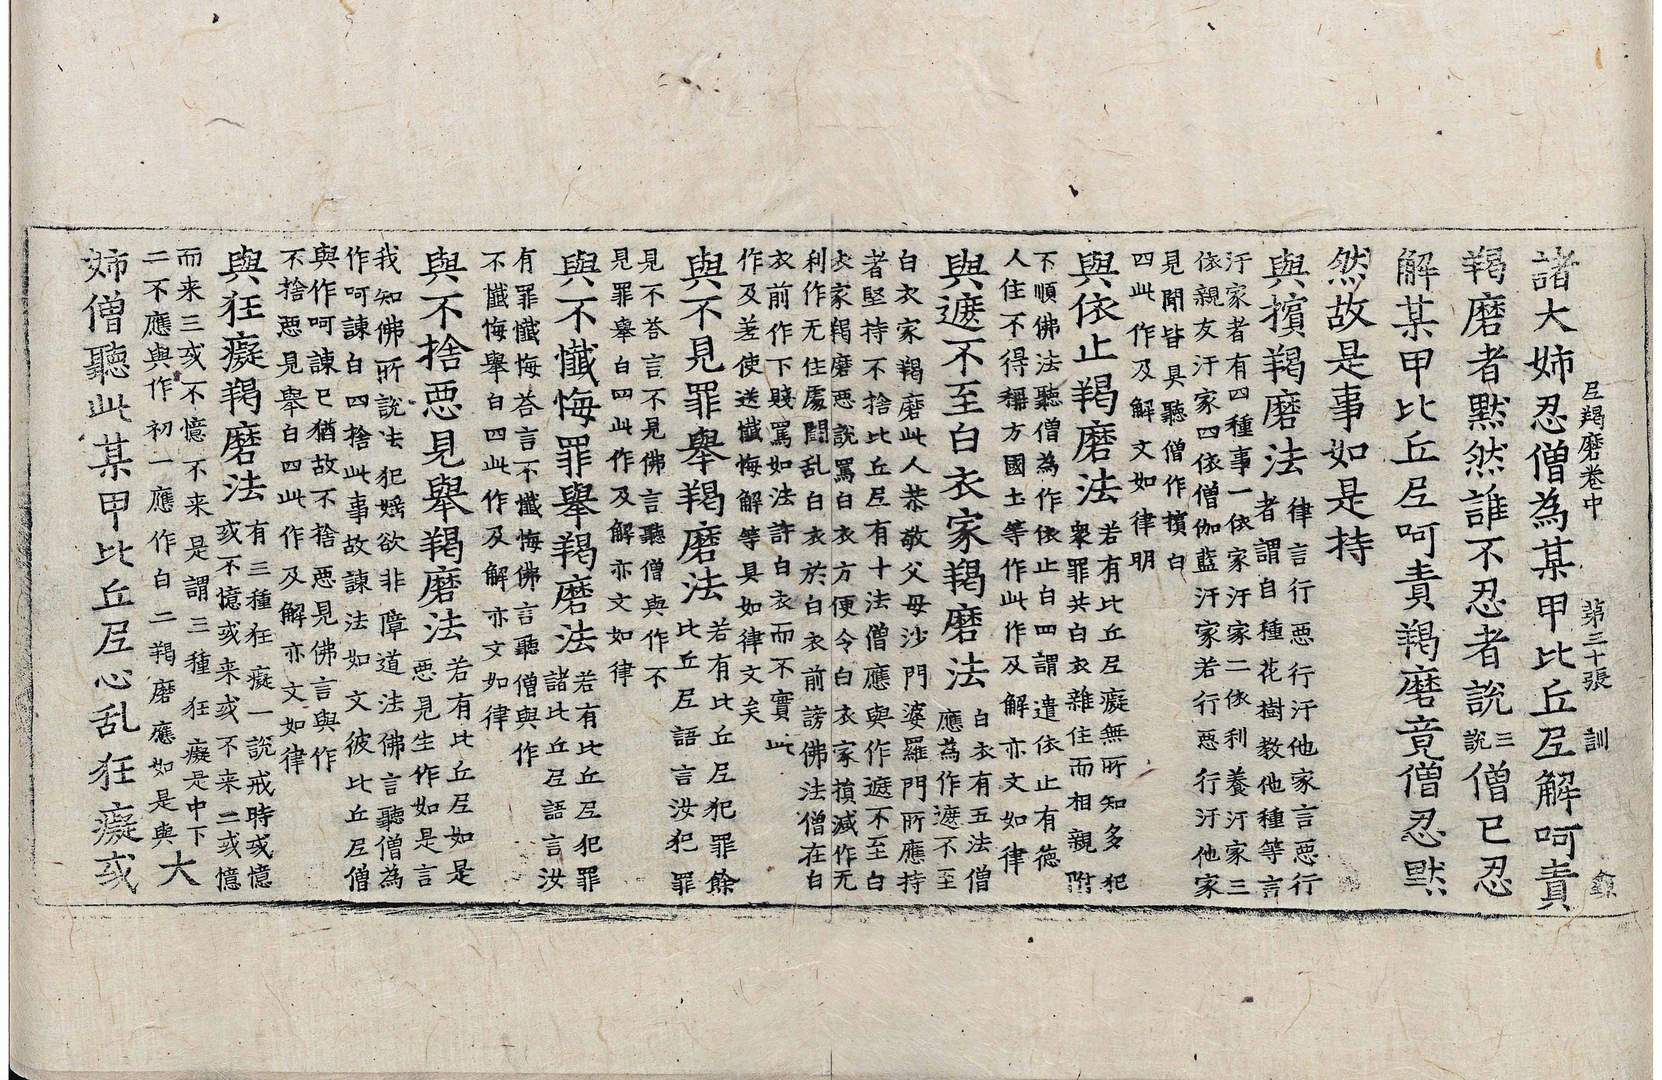 尼羯磨卷中 第三十張 訓
諸大姉忍僧為某甲比丘尼解呵責
羯磨者默然誰不忍者說三說僧已忍
解某甲比丘尼呵責羯磨竟僧忍默
然故是事如是持
與擯羯磨法
律言行惡行汙他家言惡行
者謂自種花樹教他種等言
汙家者有四種事一依家汙家二依利養汙家三
依親友汙家四依僧伽藍汙家若行惡行汙他家
見聞皆具聽僧作擯白
四此作及解文如律明
與依止羯磨法
若有比丘尼癡無所知多犯
衆罪共白衣雜住而相親附
下順佛法聽僧為作依止白四謂遣依止有德
人住不得稱方國土等作此作及解亦文如律
與遮不至白衣家羯磨法
白衣有五法僧
應為作遮不至
白衣家羯磨此人恭敬父母沙門婆羅門所應持
者堅持不捨比丘尼有十法僧應與作遮不至白
衣家羯磨惡說罵白衣方便令白衣家損減作无
利作无住處鬪乱白衣於白衣前謗佛法僧在白
衣前作下賤罵如法許白衣而不實此
作及差使送懺悔解等具如律文矣
與不見罪舉羯磨法
若有比丘尼犯罪餘
比丘尼語言汝犯罪
見不荅言不見佛言聽僧與作不
見罪舉白四此作及解亦文如律
與不懺悔罪舉羯磨法
若有比丘尼犯罪
諸比丘尼語言汝
有罪懺悔荅言不懺悔佛言聽僧與作
不懺悔舉白四此作及解亦文如律
與不捨惡見舉羯磨法
若有比丘尼如是
惡見生作如是言
我知佛所說法犯婬欲非障道法佛言聽僧為
作呵諫白四捨此事故諫法如文彼比丘尼僧
與作呵諫已猶故不捨惡見佛言與作
不捨惡見舉白四此作及解亦文如律
與狂癡羯磨法
有三種狂癡一說戒時或憶
或不憶或来或不来二或憶
而来三或不憶不来是謂三種狂癡是中下
二不應與作初一應作白二羯磨應如是與
大
姉僧聽此某甲比丘尼心乱狂癡或